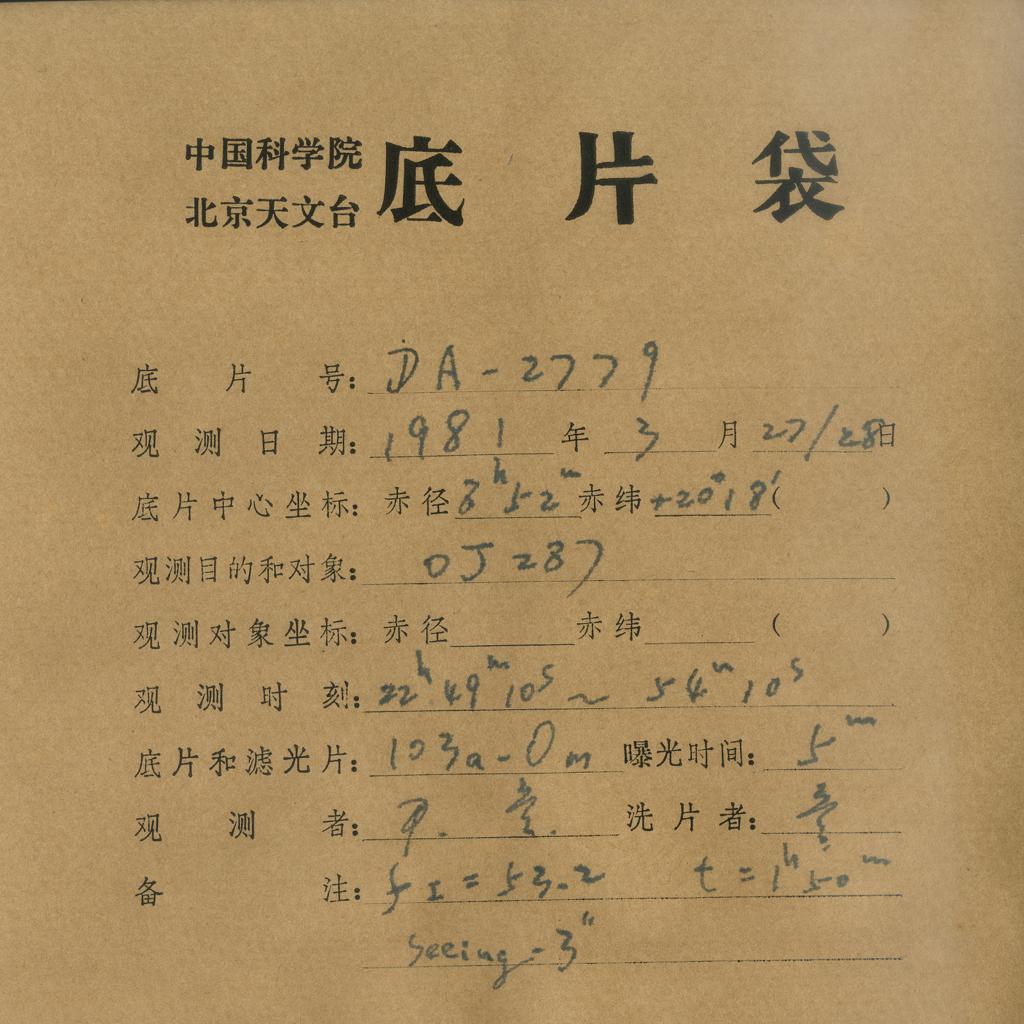 中国科学院
北京天文台
底片袋
底片号: DA-2779
观测日期: 1981年3月27/28日
底片中心坐标: 赤径8h52m赤纬+20°18′( )
观测目的和对象: OJ287
观测对象坐标: 赤径 赤纬 ( )
观测时刻: 22h49m10s~54m10s
底片和滤光片: 103a-O m 曝光时间: 5m
观测者: 洗片者:
备注: fI=53.2 t=1h50m
seeing-3″